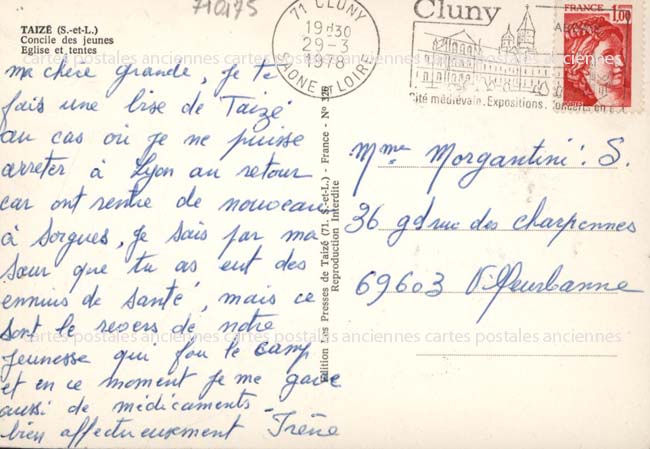 710175
TAIZÉ (S.-et-L.)
Concile des jeunes
Eglise et tentes
71 CLUNY
19H30
29-3
1978
SAONE ET LOIRE
Cluny
Cité médiévale. Expositions. Concerts
FRANCE
1,00
ma chère grande, je te
fais une bise de Taizé
au cas où je ne puisse
arreter à Lyon au retour
car ont rentre de nouveau
à Sorgues, je sais par ma
sœur que tu as eut des
ennuis de santé, mais ce
sont le revers de notre
jeunesse qui fou le camp
et en ce moment je me gave
aussi de médicaments
bien affectueusement Irène
Edition Les Presses de Taizé (71. S.-et-L.) - France - N° 328
Reproduction Interdite
Mme Morgantini. S.
36 gd rue des charpennes
69603 Villeurbanne
cartes postales anciennes cartes postales anciennes cartes postales anciennes